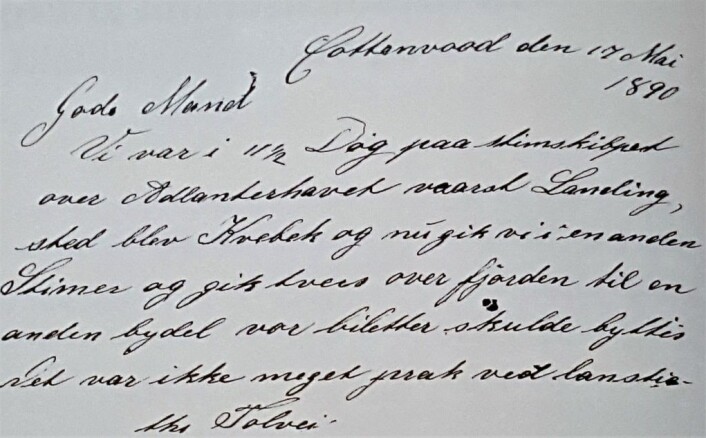 Cottonvood den 17 Mai
1890
Gode Mand
Vi var i 11½ Døg paa stimskibped
over Adlanterhavet vaarst Landing,
sted blev Kvebek og nu gik vi i en anden
Stimer og gik tvers over fjorden til en
anden bydel vor biletter skulde byttis
Det var ikke meget prak ved
Tolvei